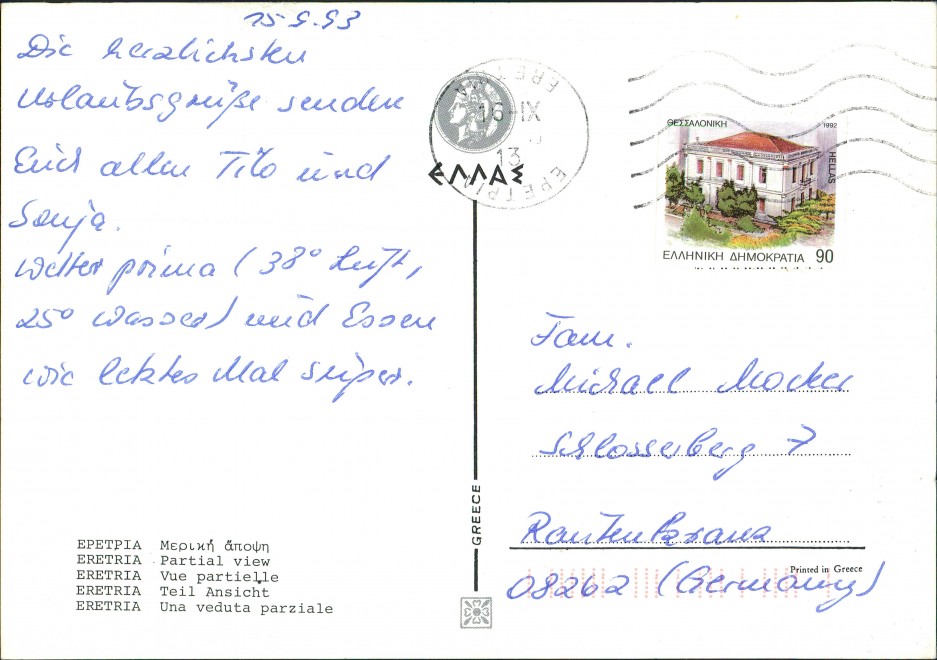 15-9-93
Die herzlichsten
Urlaubsgrüße senden
Euch allen Tilo und
Sonja.
Wetter prima (38° Luft,
25° Wasser) und Essen
wie letztes Mal super.
ΕΡΕΤΡΙΑ Μερική άποψη
ERETRIA Partial view
ERETRIA Vue partielle
ERETRIA Teil Ansicht
ERETRIA Una veduta parziale
ΕΡΕΤΡΙΑ
16-IX
13
ΕΡΕΤΡΙΑ
ΕΛΛΑΣ
GREECE
ΘΕΣΣΑΛΟΝΙΚΗ 1992
HELLAS
ΕΛΛΗΝΙΚΗ ΔΗΜΟΚΡΑΤΙΑ 90
Fam.
Michael Mocker
Schlosserberg 7
Rautenkranz
Printed in Greece
08262 (Germany)